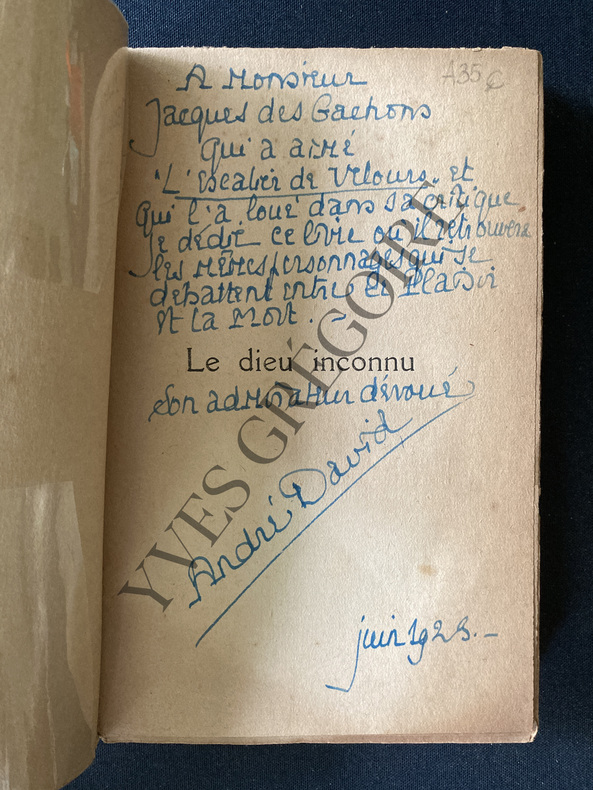 A35 €
A Monsieur
Jacques des Gachons
qui a aimé
"L'Escalier de Velours" et
qui l'a loué dans sa critique
je dédie ce livre où il retrouvera
les mêmes personnages qui se
débattent entre le Plaisir
et la Mort. –
Le dieu inconnu
Son admirateur dévoué
André David
juin 1923. –
YVES GRÉGOIRE